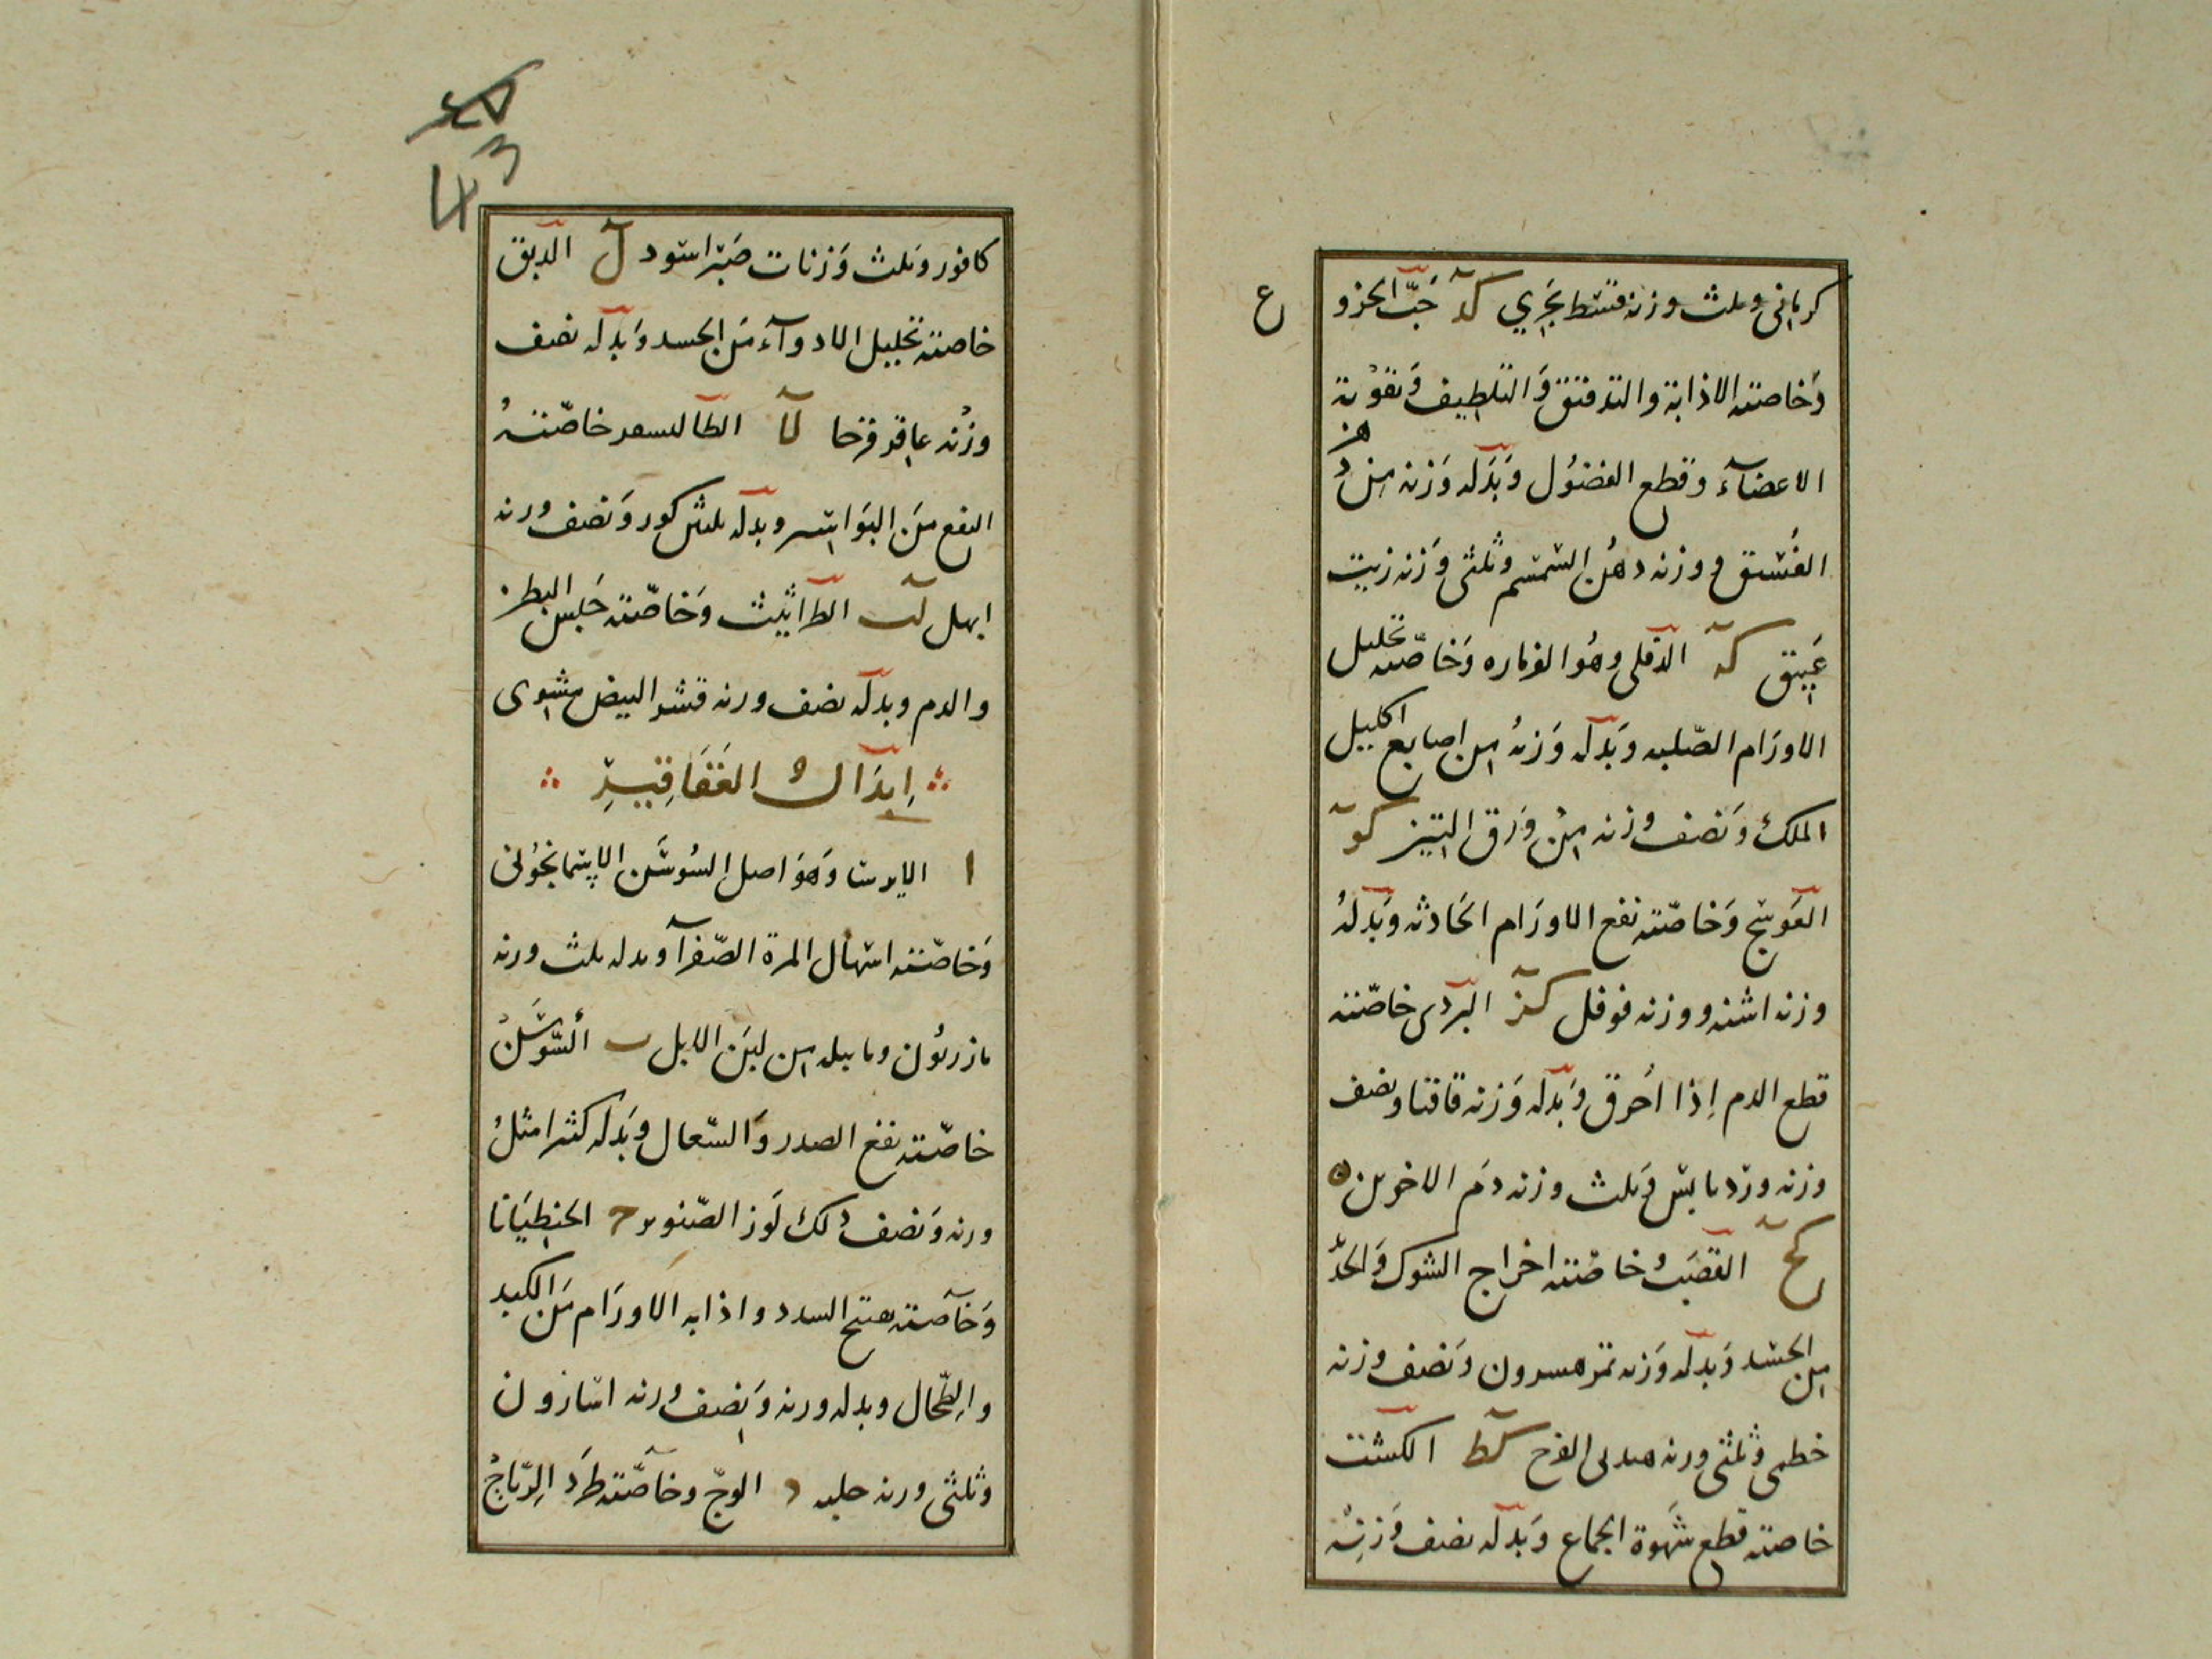 كرمانى وثلث وزنه قسط بحري كد حب الخزو
ع
وخاصته الاذابة والتدقيق والتلطيف وتقوية
الاعضاء وقطع الفضول وبدله وزنه من دهن
الفستق ووزنه دهن السمسم وثلثى وزنه زيت
عتيق كه الدفلى وهو وخاصته تحليل
الاورام الصلبه وبدله وزنه من اصابع اكليل
الملك ونصف وزنه من ورق التين كو
العوسج وخاصته نفع الاورام الحادثه وبدله
وزنه اشنه ووزنه فوفل كز البردى خاصته
قطع الدم إذا احرق وبدله وزنه قاقيا ونصف
وزنه ورد يابس وثلث وزنه دم الاخوين
كح القصب خاصته اخراج الشوك
من الجسد وبدله وزنه ونصف وزنه
خطمى وثلثى ورنه كط الكشت
خاصته قطع شهوة الجماع وبدله نصف وزنه
43
كافور وثلث وزنات صبر اسود ل الدبق
خاصته تحليل الادوآء من الجسد وبدله نصف
وزنه عاقر قرحا لا خاصّته
النفع من البواسير وبدله ونصف ورنه
ابهل لب الطراثيث وخاصّته حبس البطن
والدم وبدله نصف ورنه قشر البيض مشوى
إبدال العقاقير
ا الايرسا وهو اصل السوسن الاسمانجونى
وخاصّته اسهال المرة الصّفرآ وبدله ثلث ورنه
مازريون ومايله من لبن الابل ب السّوسن
خاصّته نفع الصدر والسّعال وبدله كثيرا مثل
ورنه ونصف ذلك لوز الصّنوبر ج الجنطيانا
وخاصته فتح السدد واذابه الاورام من الكبد
والطّحال وبدله ورنه ونصف ورنه اسارون
وثلثى ورنه حلبه د الوجّ وخاصّته طرد الرّياح